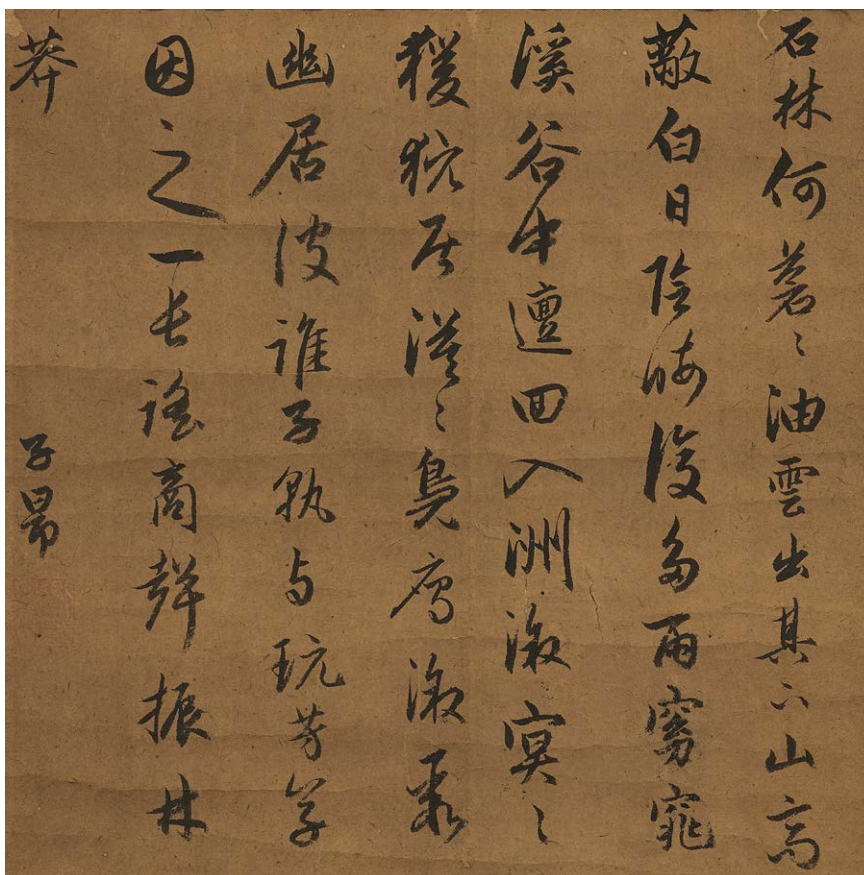 石林何苕〻油雲出其下山高
蔽白日陰晦復多雨窈窕
溪谷中邅回入洲溆冥〻
猨狖居漠〻鳧鴈溆眾
幽居彼誰子孰与玩芳草
因之一長謡商聲振林
莽
子昂